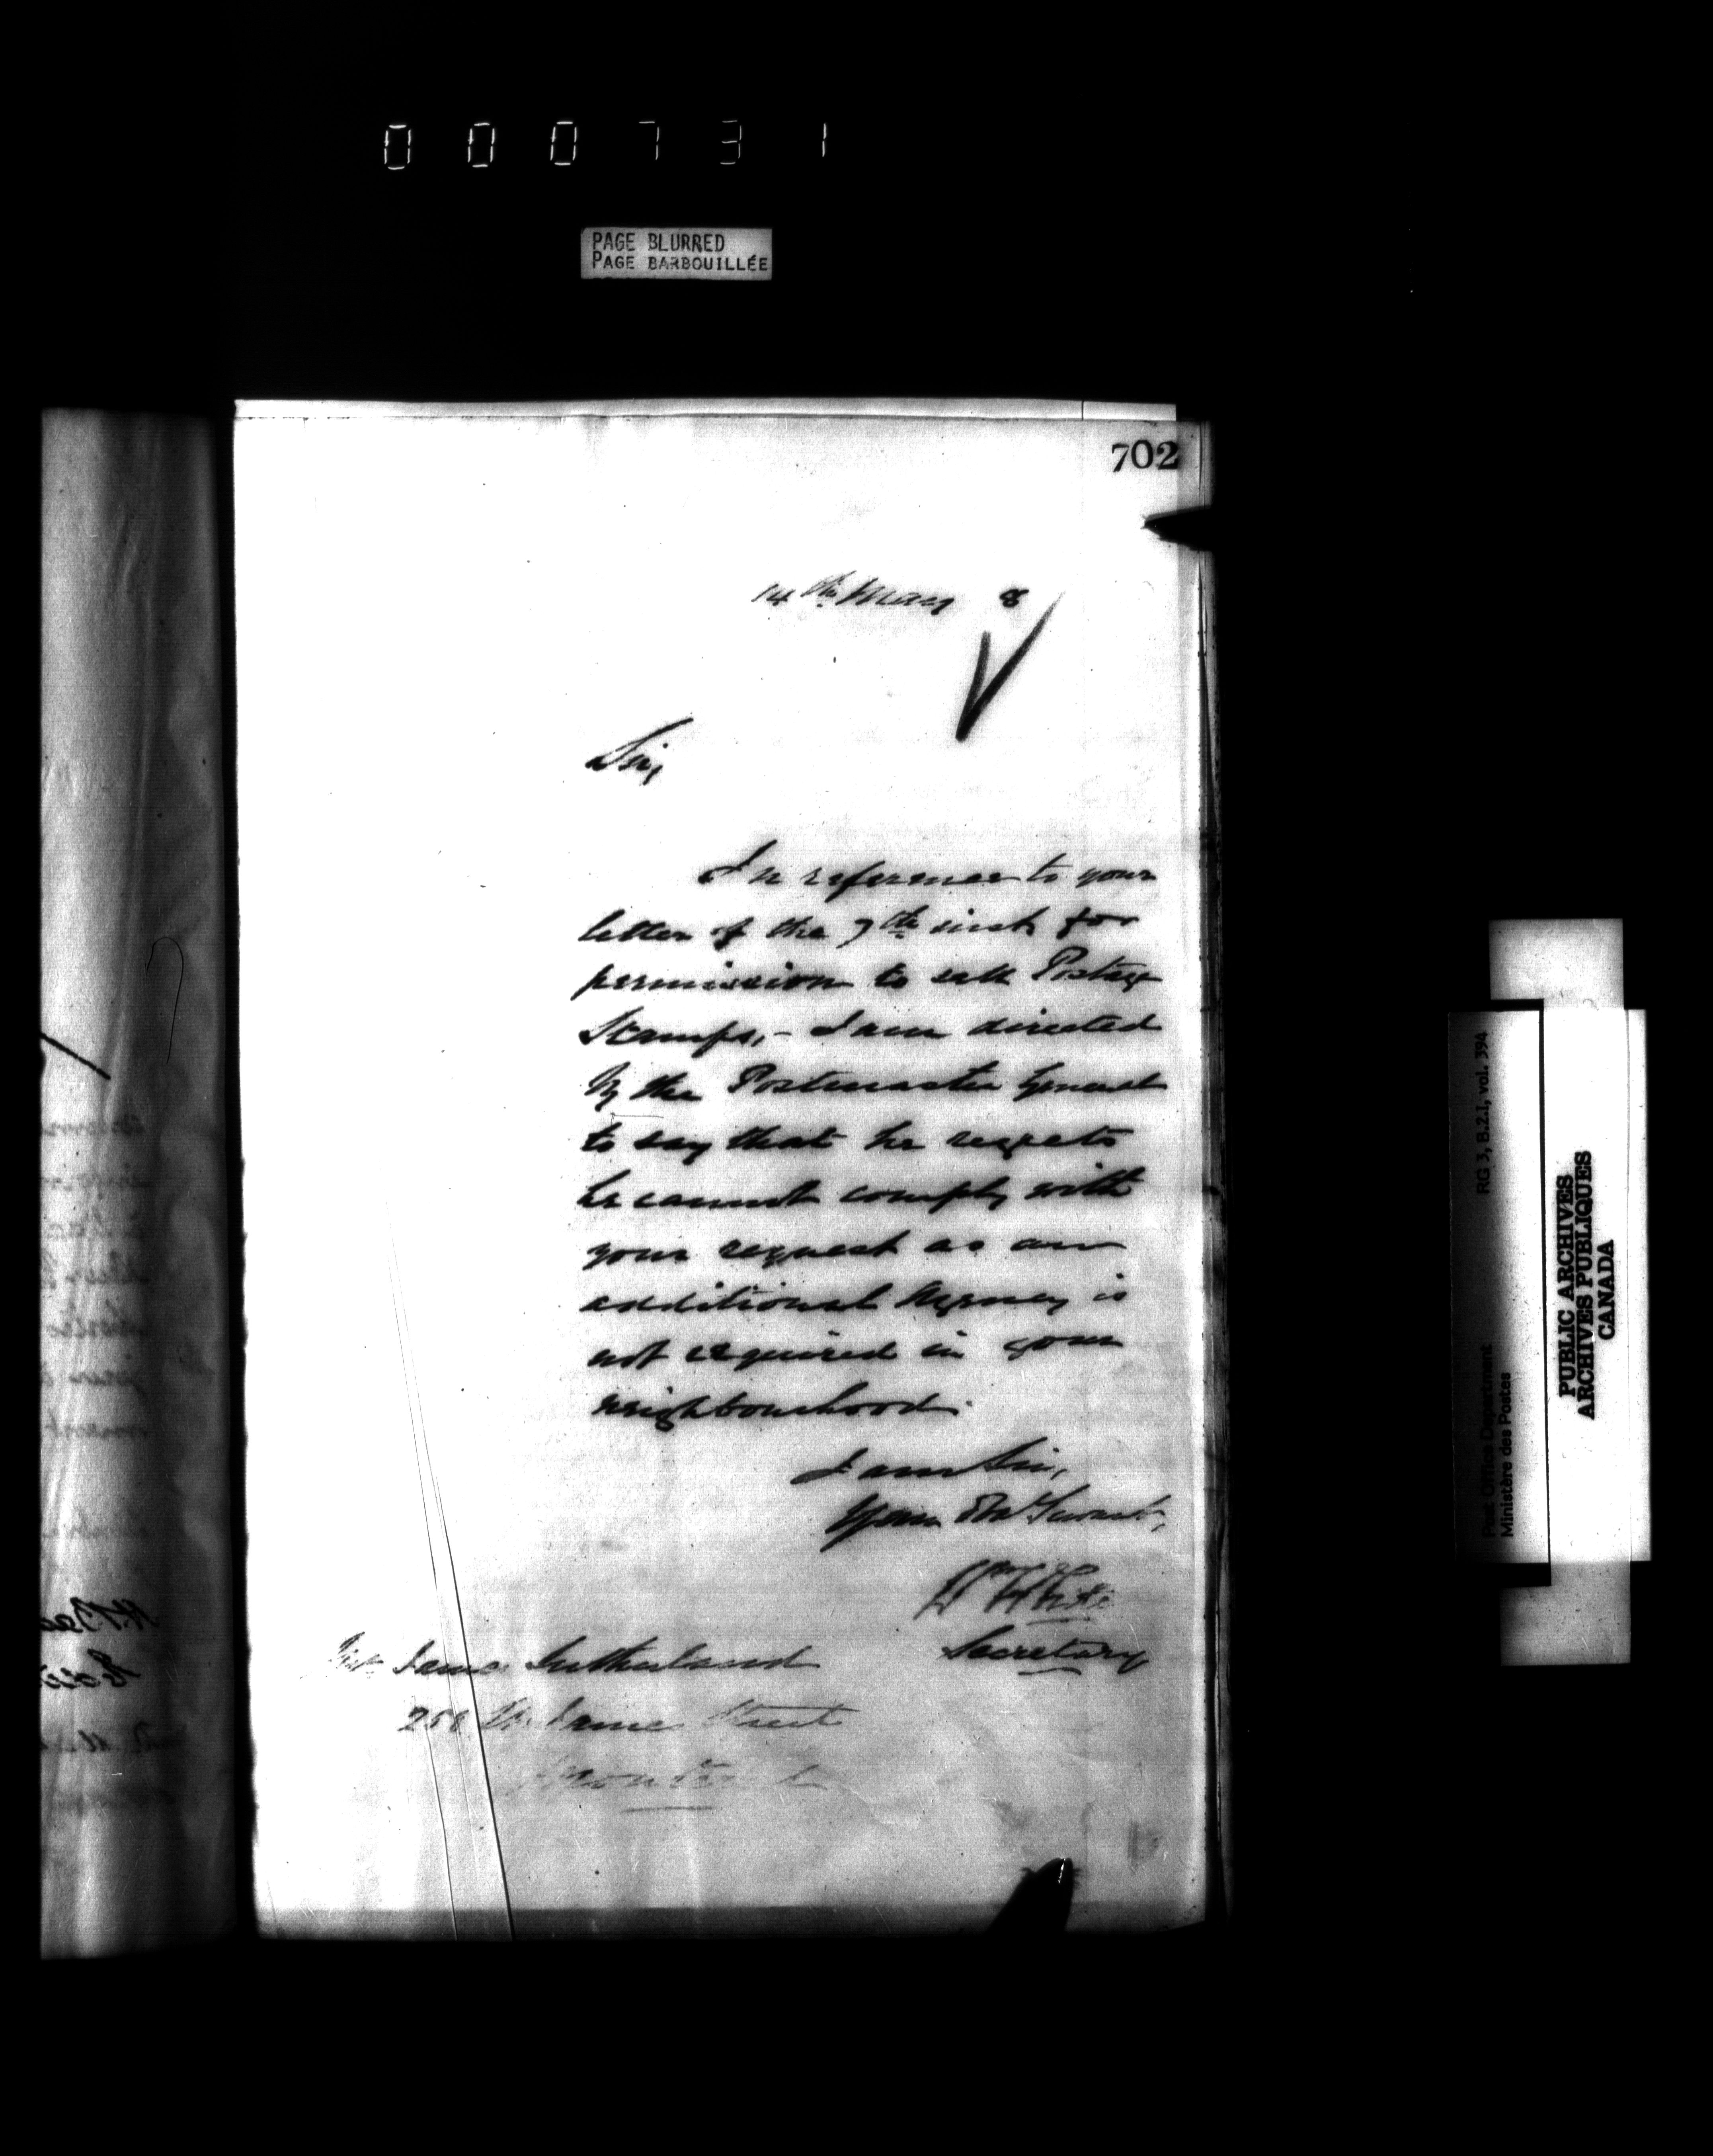 000731
PAGE BLURRED
PAGE BARBOUILLÉE
702
14th May 8
Sir,
In reference to your
letter of the 7th inst for
permission to sell Postage
Stamps, - I am directed
by the Postmaster General
to say that he regrets
he cannot comply with
your request as an
additional Agency is
not required in your
neighbourhood.
I am Sir,
Your Obt Servant,
Wm White
Secretary
James Sutherland
St. James Street
Montreal
RG 3, B.2.1, vol. 394
Post Office Department
Ministère des Postes
PUBLIC ARCHIVES
ARCHIVES PUBLIQUES
CANADA